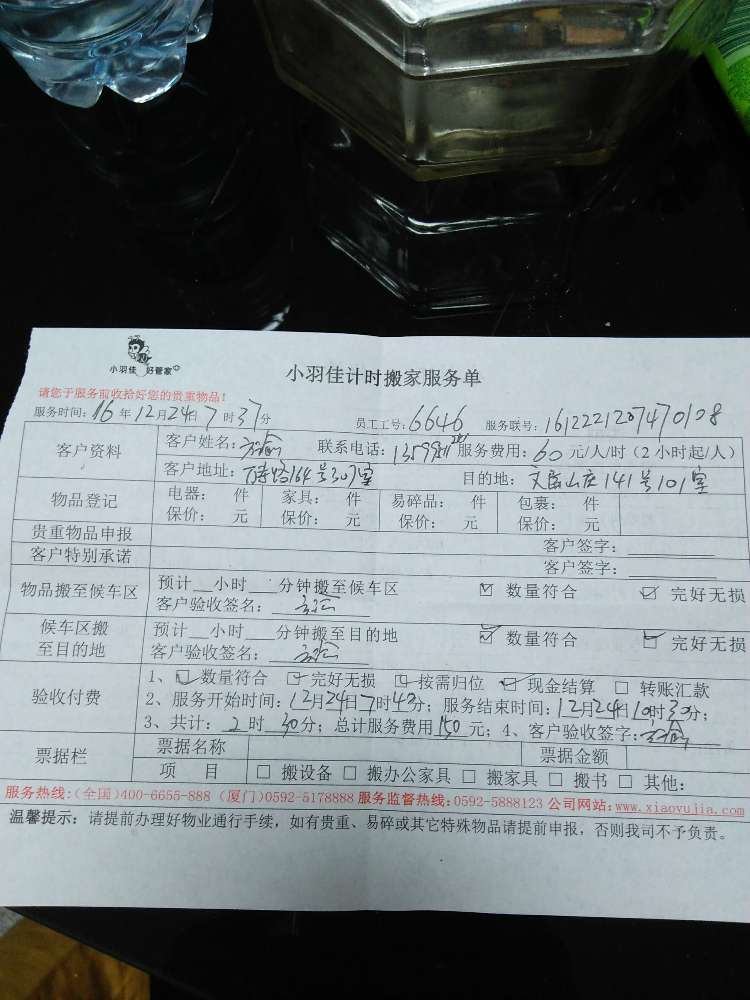 小羽佳 好管家
小羽佳计时搬家服务单
请您于服务前收拾好您的贵重物品!
服务时间: 16 年 12 月 24 日 7 时 37 分 员工工号: 6646 服务联号: 1612221207470108
客户资料 客户姓名: 联系电话: 服务费用: 60 元/人/时(2 小时起/人)
客户地址: 万寿路164号307室 目的地: 文屏山庄141号101室
物品登记 电器: 件 家具: 件 易碎品: 件 包裹: 件
保价: 元 保价: 元 保价: 元 保价: 元
贵重物品申报 客户签字:
客户特别承诺 客户签字:
物品搬至候车区 预计__小时___分钟搬至候车区 ☑ 数量符合 ☑ 完好无损
客户验收签名:
候车区搬至目的地 预计__小时___分钟搬至目的地 ☑ 数量符合 ☑ 完好无损
客户验收签名:
验收付费 1、☑ 数量符合 ☑ 完好无损 ☑ 按需归位 ☑ 现金结算 □ 转账汇款
2、服务开始时间: 12月24日7时40分; 服务结束时间: 12月24日10时30分;
3、共计: 2 时 30分; 总计服务费用 150 元; 4、客户验收签字:
票据栏 票据名称 票据金额
项 目 □ 搬设备 □ 搬办公家具 □ 搬家具 □ 搬书 □ 其他:
服务热线:(全国)400-6655-888 (厦门)0592-5178888 服务监督热线:0592-5888123 公司网站:www.xiaoyujia.com
温馨提示: 请提前办理好物业通行手续, 如有贵重、易碎或其它特殊物品请提前申报, 否则我司不予负责。